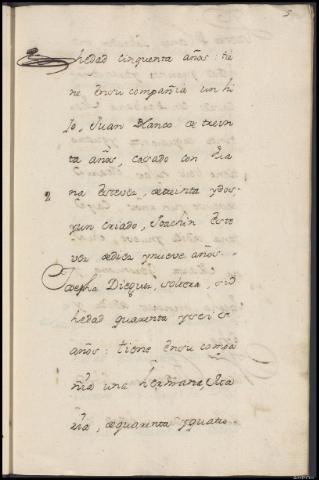 5
hedad cinquenta años: tie
ne ensu compañia un hi
jo, Juan Blanco de trein
ta años, casado con Ma
na Estevez, detreinta ydos
2
yun criado, Joachin Este
vez dediez ynueve años.
Josepha Dieguez, soltera, su
hedad quarenta yseis
años: tiene ensu compa
ñia una hermana, Ma
ria, dequarenta yquatro.